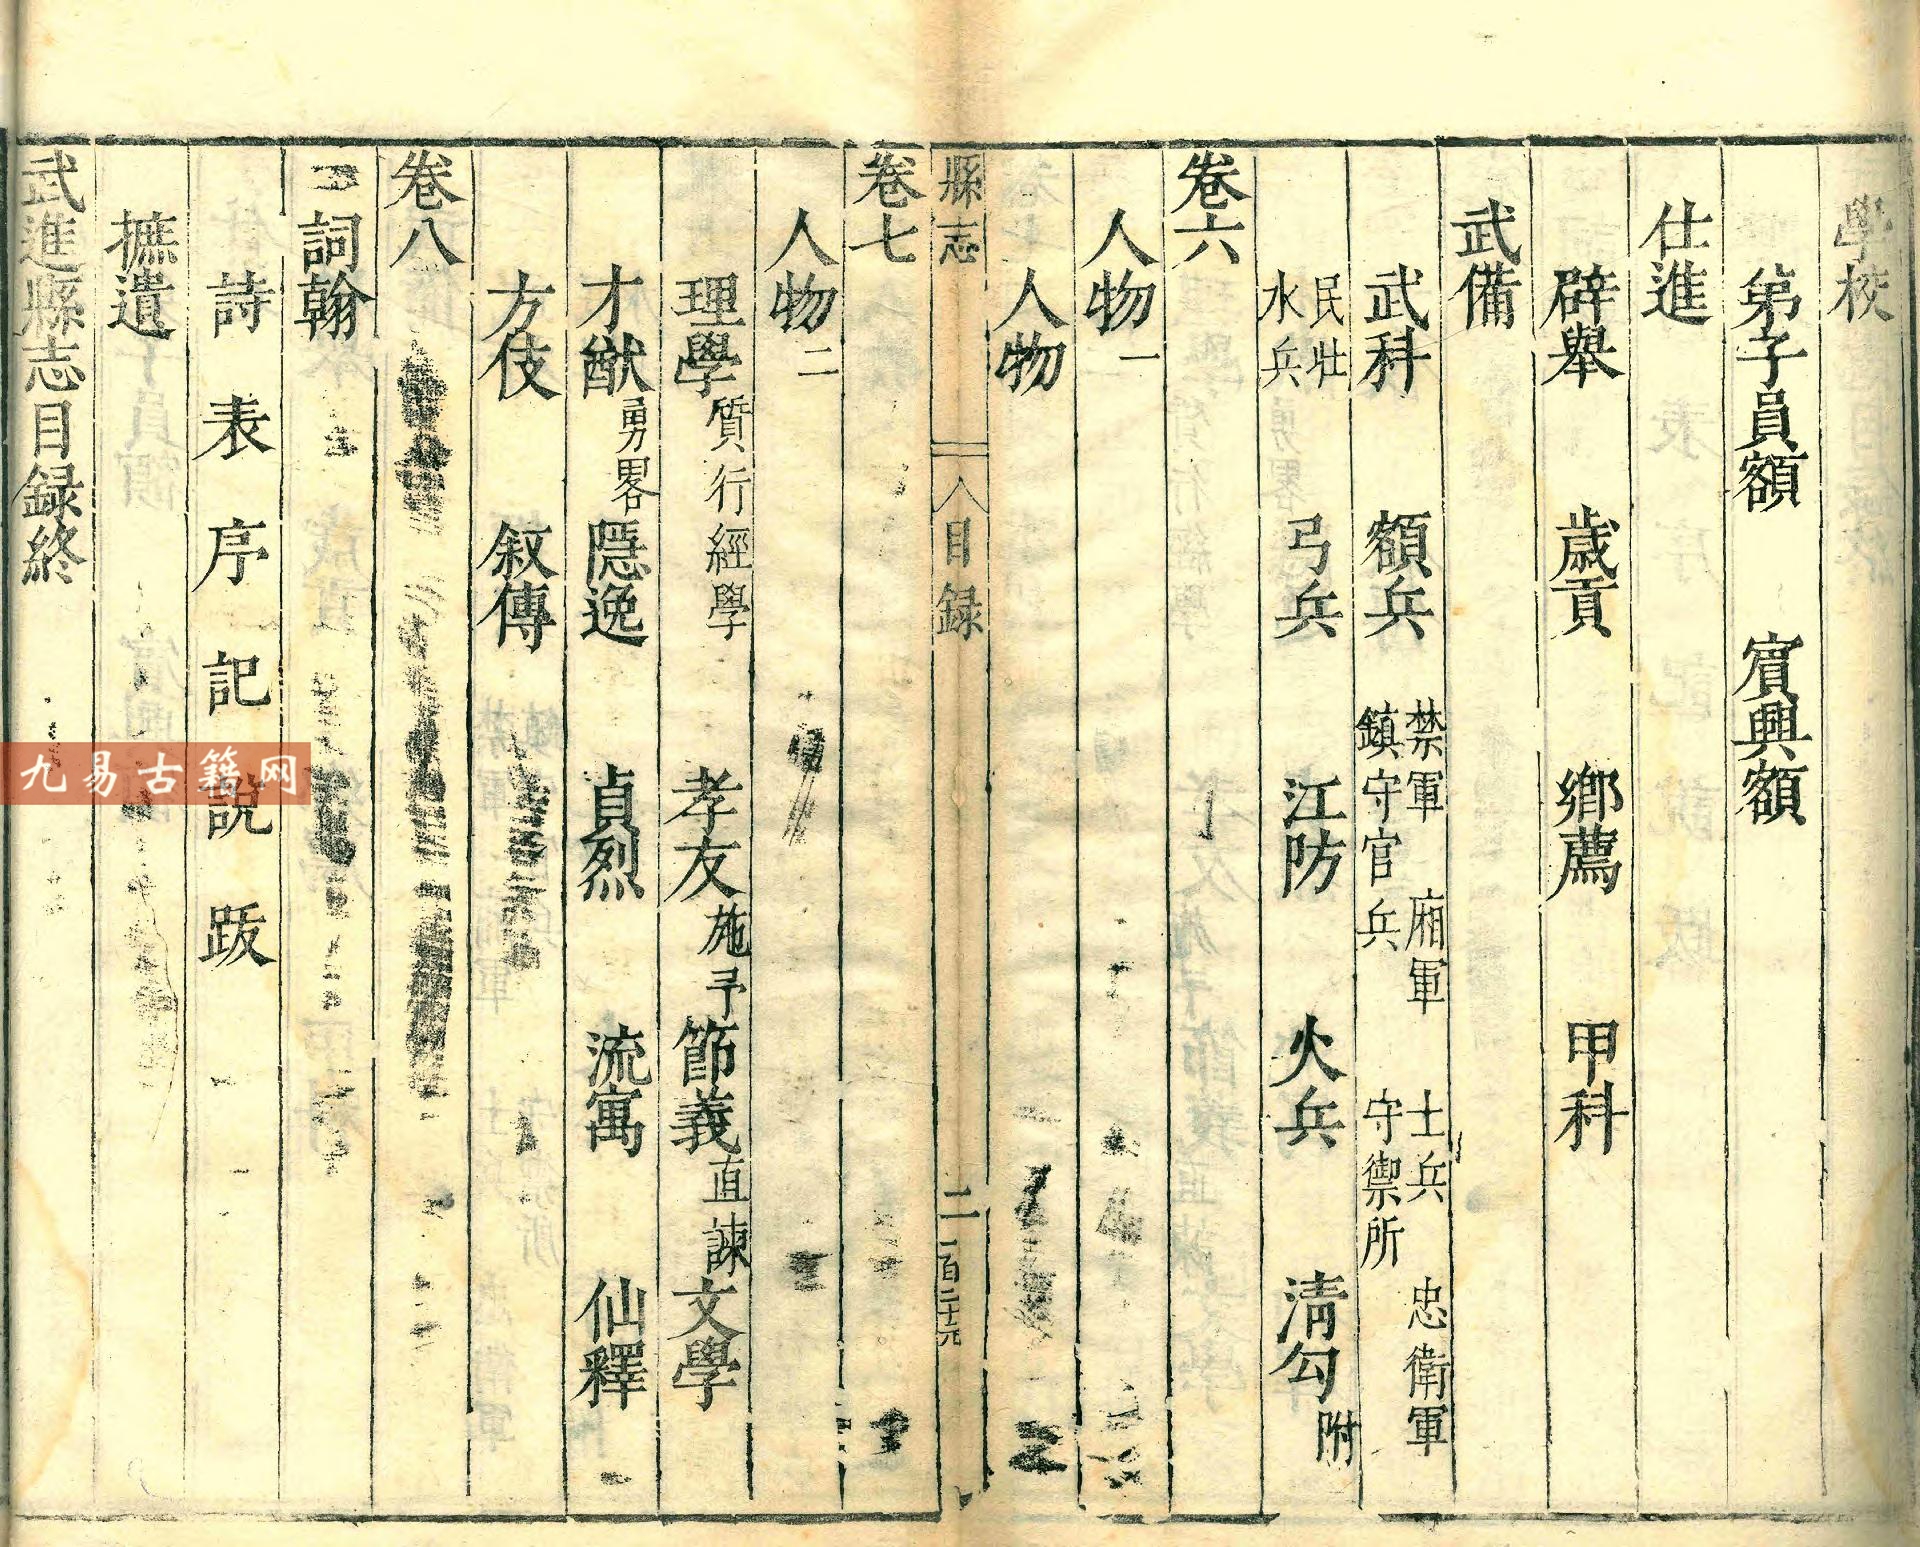 學校
弟子員額 賓興額
仕進
辟舉 歲貢 鄉薦 甲科
武備
武科 額兵 禁軍 廂軍 士兵 忠衛軍 鎮守官兵 守禦所
民壯 水兵 弓兵 江防 火兵 清勾附
卷六
人物一
人物
縣志 目録 二
卷七
人物二
理學 質行 經學 孝友 施予 節義 直諫 文學
才猷 勇畧 隱逸 貞烈 流寓 仙釋
方伎 叙傳
卷八
詞翰
詩 表 序 記 說 跋
摭遺
武進縣志目録終
九易古籍网